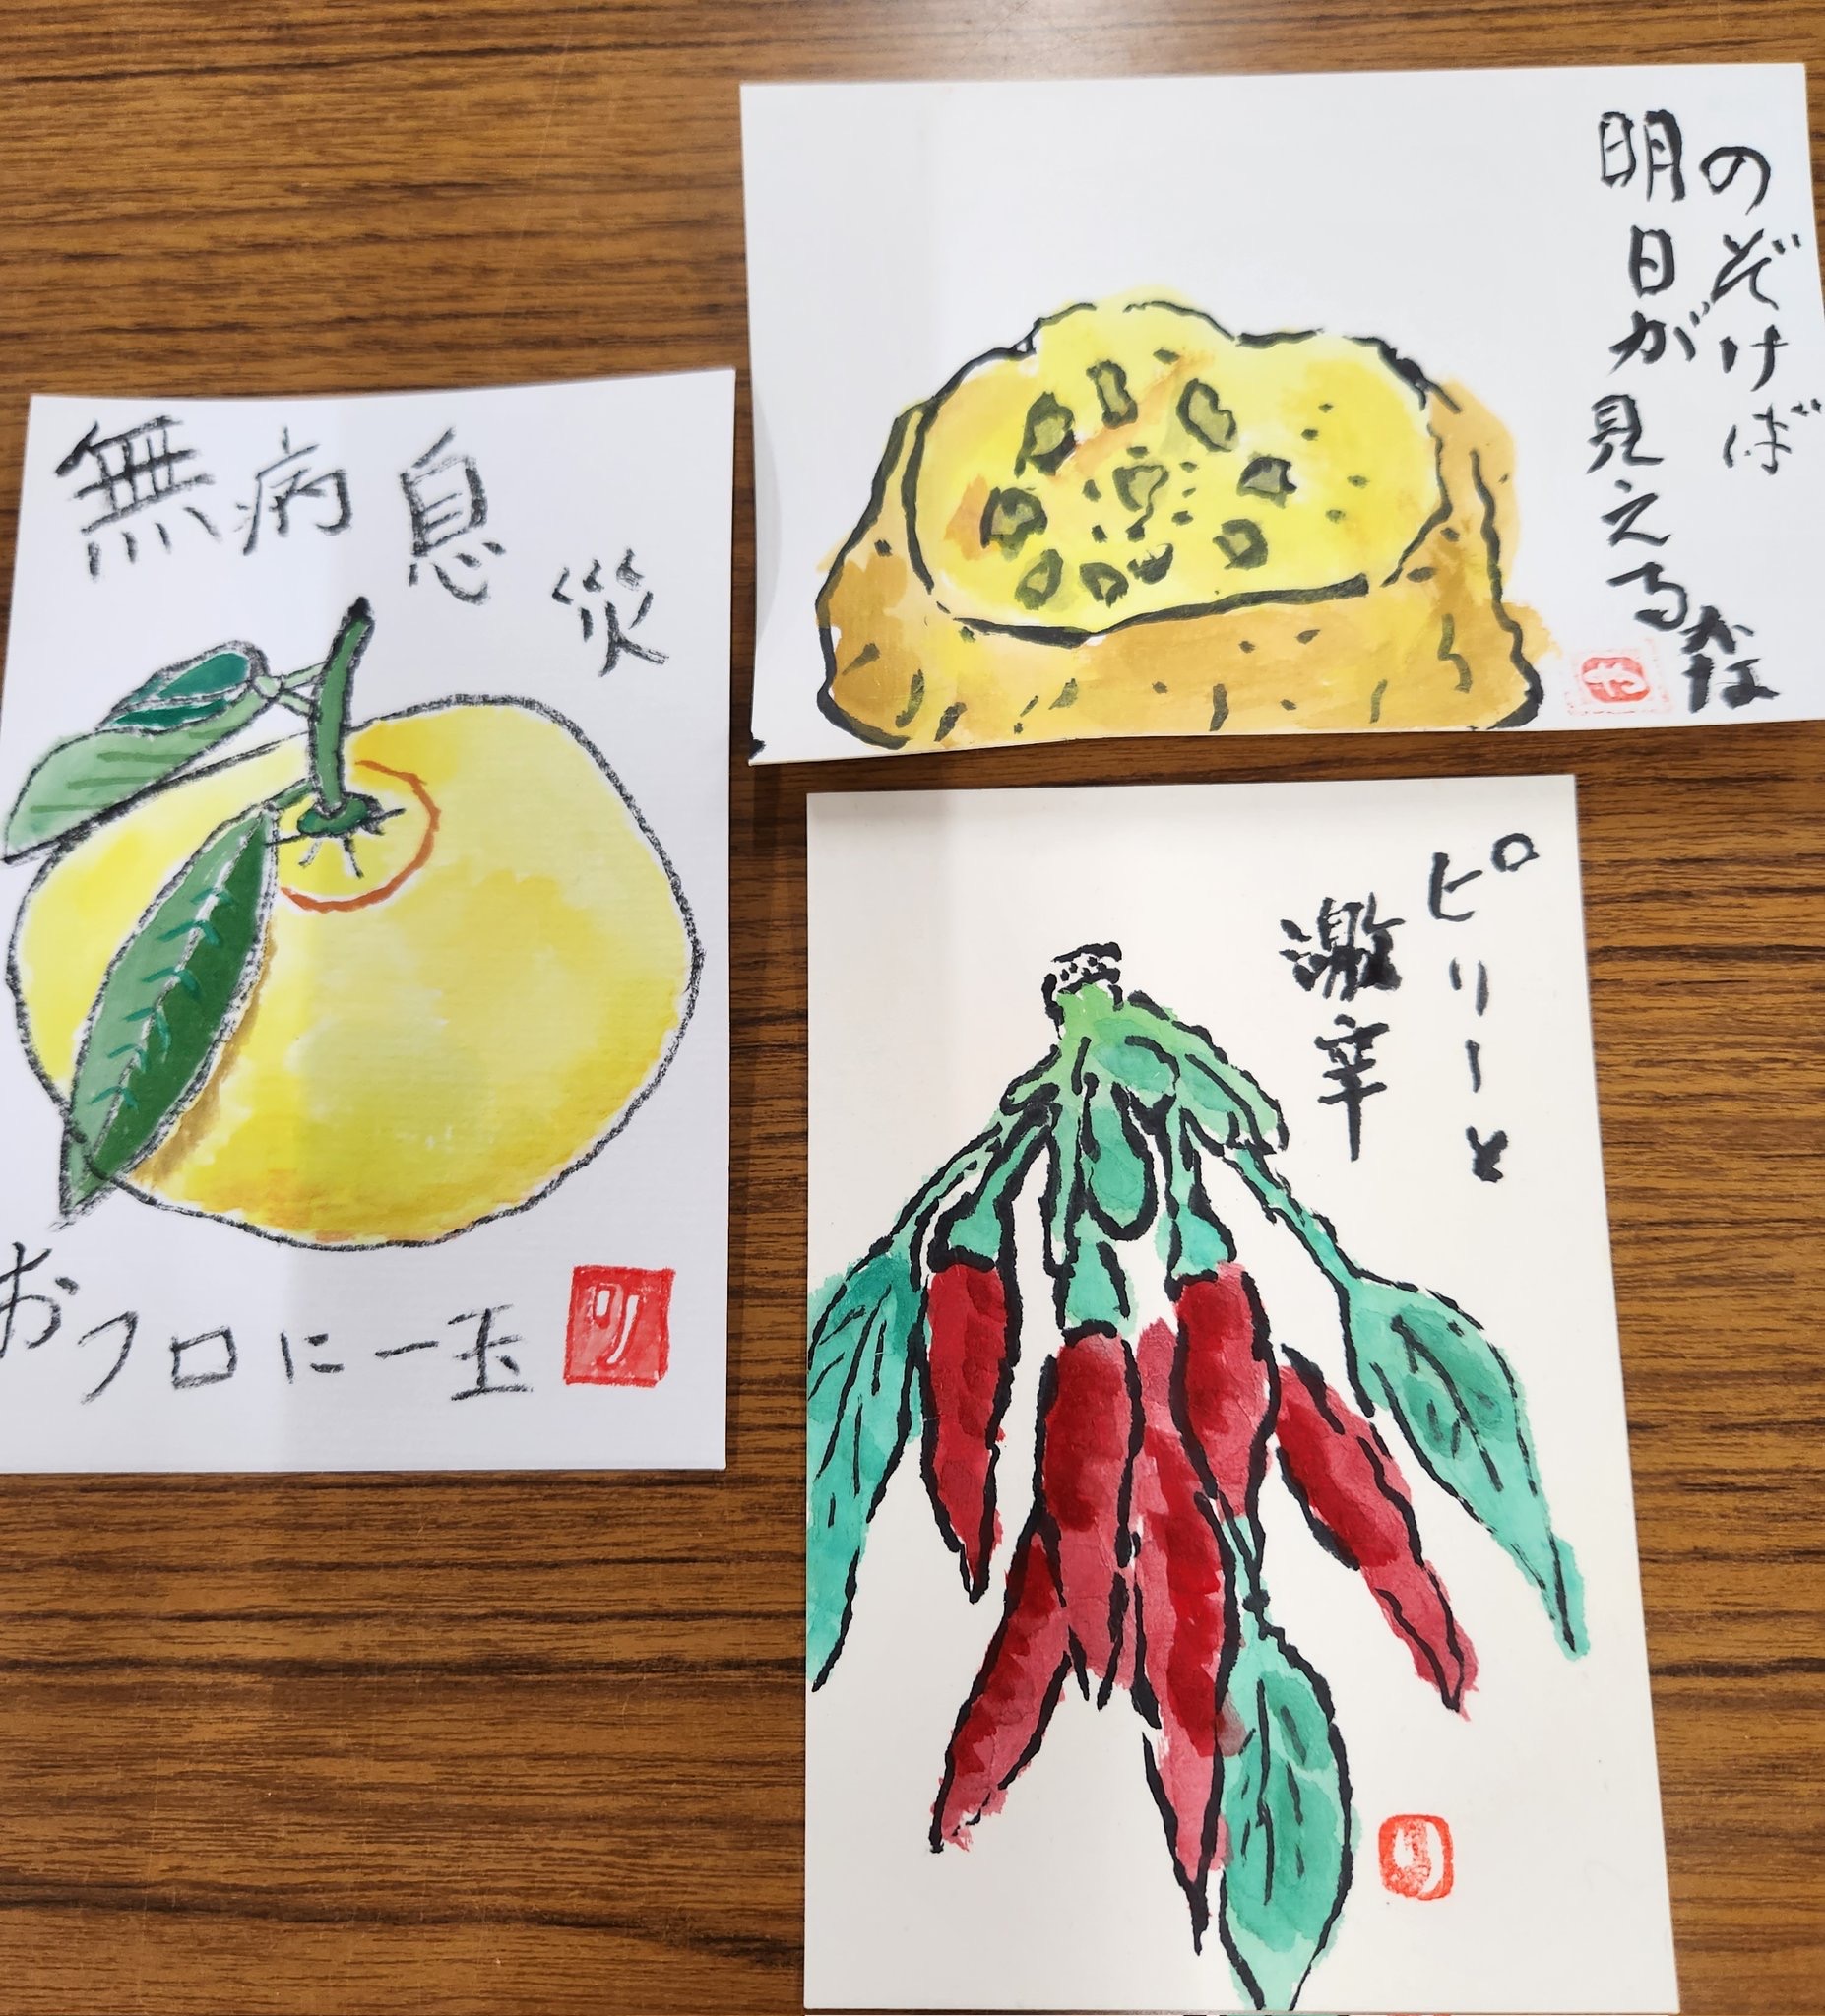 無病息災
おフロに一玉
リ
のぞけば
明日が見えるかな
や
ピリーと
激辛
り